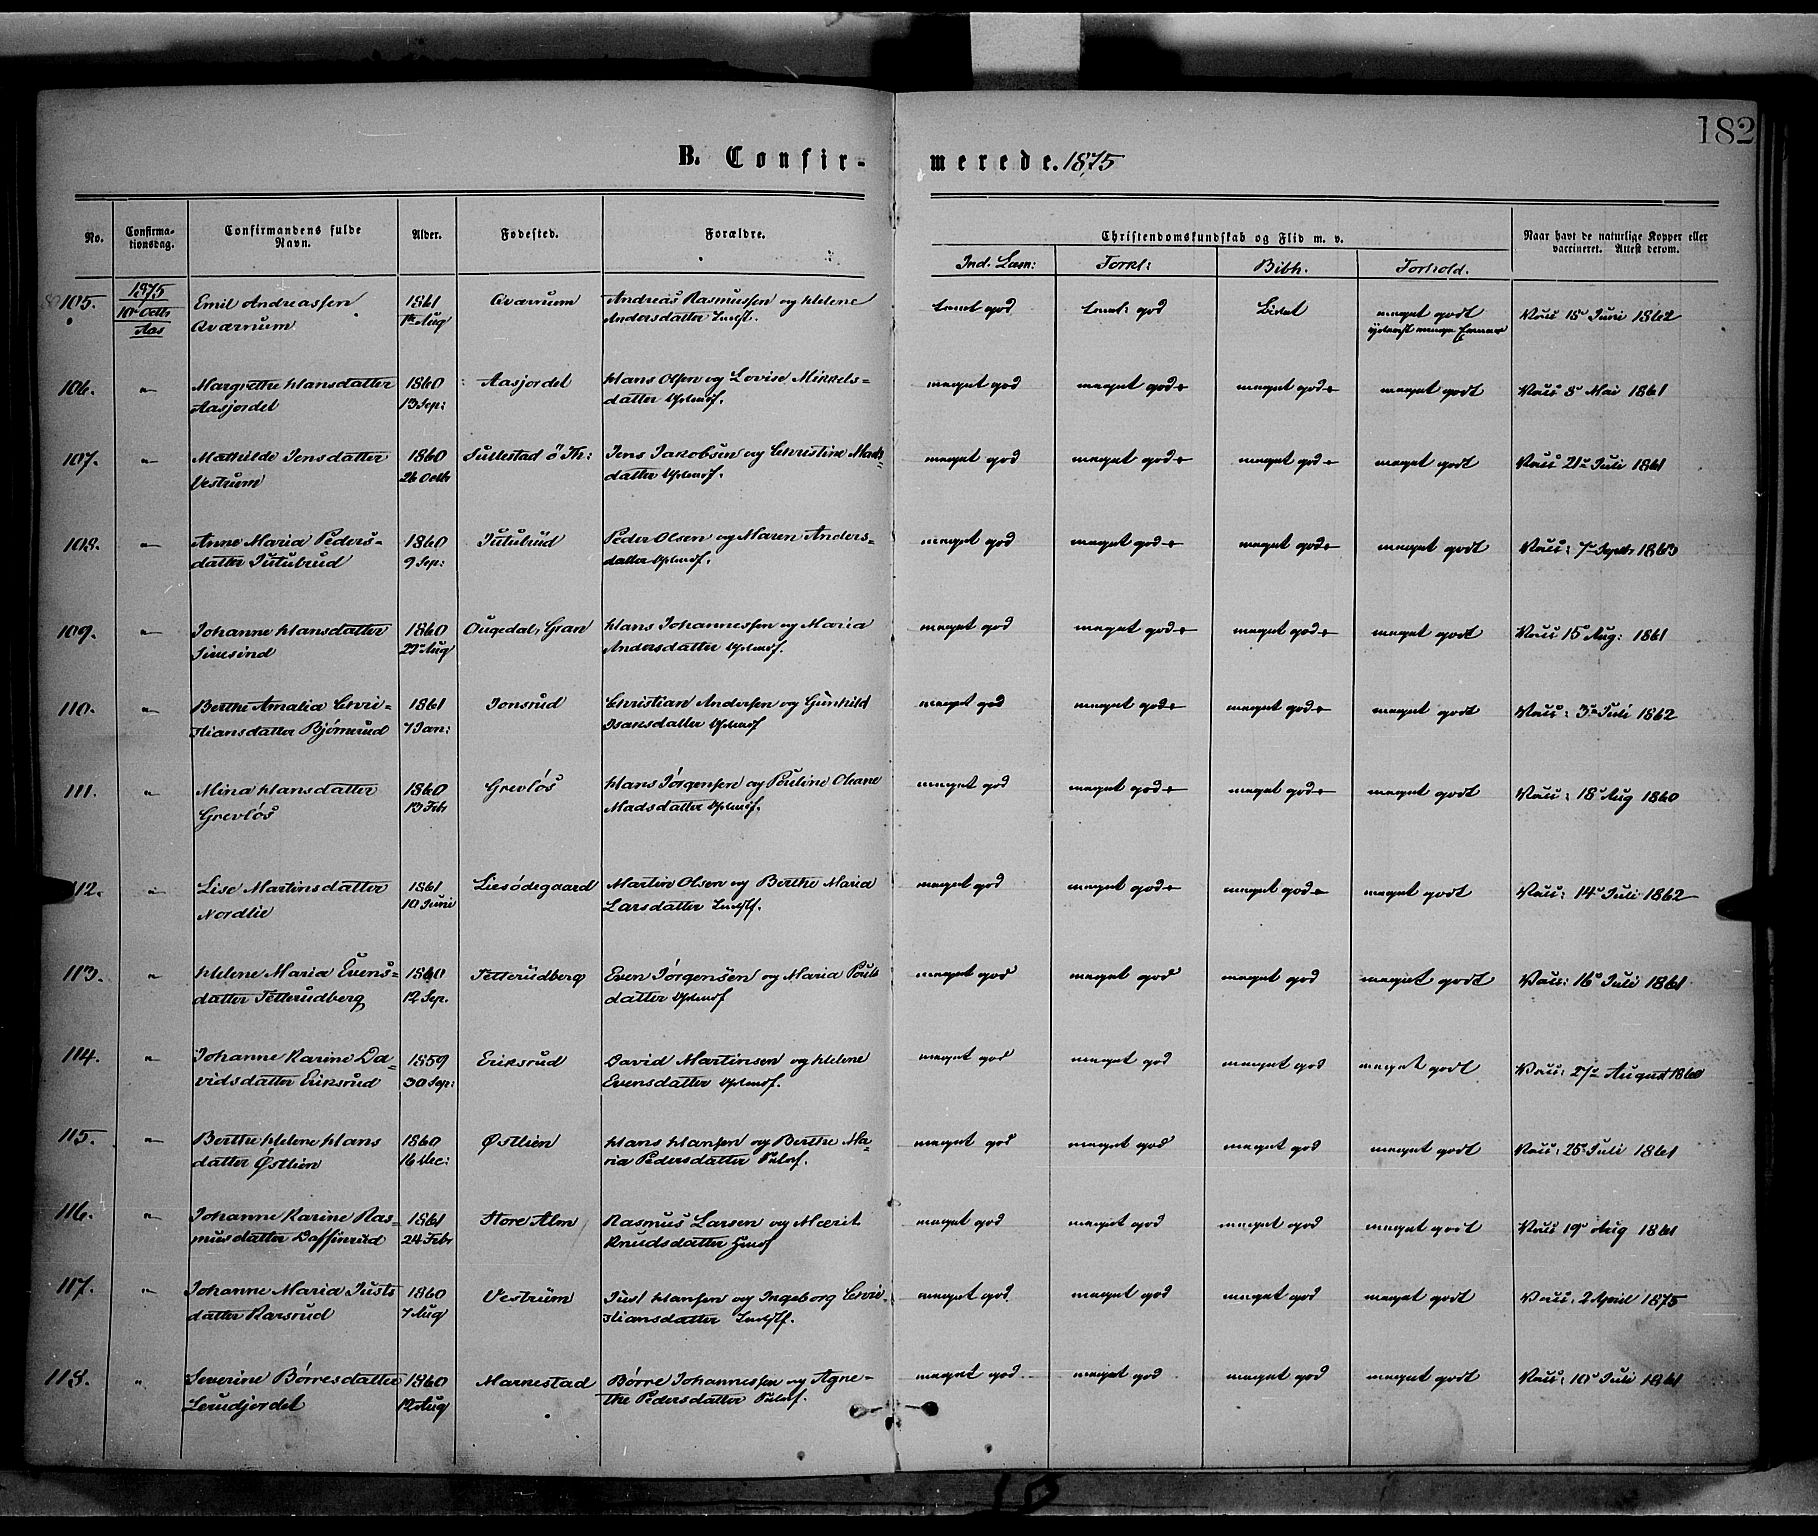 182
B. Confirmerede. 1875
No. Confirmationsdag. Confirmandens fulde Navn. Alder. Fødested. Forældre. Christendomskundskab og Flid m. v. Naar havt de naturlige Kopper eller vaccineret. Attest derom.
Ind. Læsn: Forkl: Bibh. Forhold.
105. 1875 Emil Andreassen 1861 Qværnum Andreas Rasmussen og Helene temt god god meget godt Vacc 18 Juni 1862
10de Octb Qværnum 1ste Aug Andersdatter
Aas
106. " Margrethe Hansdatter 1860 Aasjordet Hans Olsen og Lovise Mikkels= meget god meget god meget god meget godt Vacc 8 Mai 1861
Aasjordet 13 Sep: datter
107. " Mathilde Jensdatter 1860 Sullestad ö Th: Jens Jakobsen og Christine Mads= meget god meget god meget god meget godt Vacc 21 Juli 1861
Vestrum 26 Octb datter
108. " Anne Maria Peders= 1860 Tutubrud Peder Olsen og Maren Anders= meget god meget god meget god meget godt Vacc: 7 Septb 1863
datter Tutubrud 9 Sep: datter
109. " Johanne Hansdatter 1860 Ougedal, Gran Hans Johannessen og Maria meget god meget god meget god meget godt Vacc 15 Aug: 1861
Aug Andersdatter
110. " Berthe Amalia Chri= 1861 Jonsrud Christian Andersen og Gunhild meget god meget god meget god meget godt Vacc: 3 Juli 1862
stiansdatter Bjørnerud 7 Jan: Isaksdatter
111. " Mina Hansdatter 1860 Grevløs Hans Jørgensen og Pouline Oleane meget god meget god meget god meget godt Vacc: 18 Aug 1860
Grevløs 13 Feb Madsdatter
112. " Lise Martinsdatter 1861 Liesødegaard Martin Olsen og Berthe Maria meget god meget god meget god meget godt Vacc: 14 Juli 1862
Nordlie 10 Juni Larsdatter
113. " Helene Maria Evens= 1860 Tetterudberg Even Jørgensen og Maria Pouls meget god meget god meget god meget godt Vacc: 16 Juli 1861
datter Tetterudberg 12 Sep. datter
114. " Johanne Karine Da= 1859 Eriksrud David Martinsen og Helene meget god meget god meget god meget godt Vacc: 27 August 1860
vidsdatter Eriksrud 30 Sep: Evensdatter
115. " Berthe Helene Hans 1860 Østlien Hans Hansen og Berthe Ma= meget god meget god meget god meget godt Vacc: 25 Juli 1861
datter Østlien 16 Dec: ria Pedersdatter
116. " Johanne Karine Ras= 1861 Store Alm Rasmus Larsen og Marit meget god meget god meget god meget godt Vacc 19 Aug 1861
musdatter Daffinrud 24 Feb Knudsdatter
117. " Johanne Maria Justs 1860 Vestrum Just Hansen og Ingeborg Chri= meget god meget god meget god meget godt Vacc: 2 April 1875
datter Karsrud 7 Aug stiansdatter
118. " Severine Børresdatter 1860 Marnestad Børre Johannessen og Agne= meget god meget god meget god meget godt Vacc: 10 Juli 1861
Lerudjordet 12 Aug the Pedersdatter
10